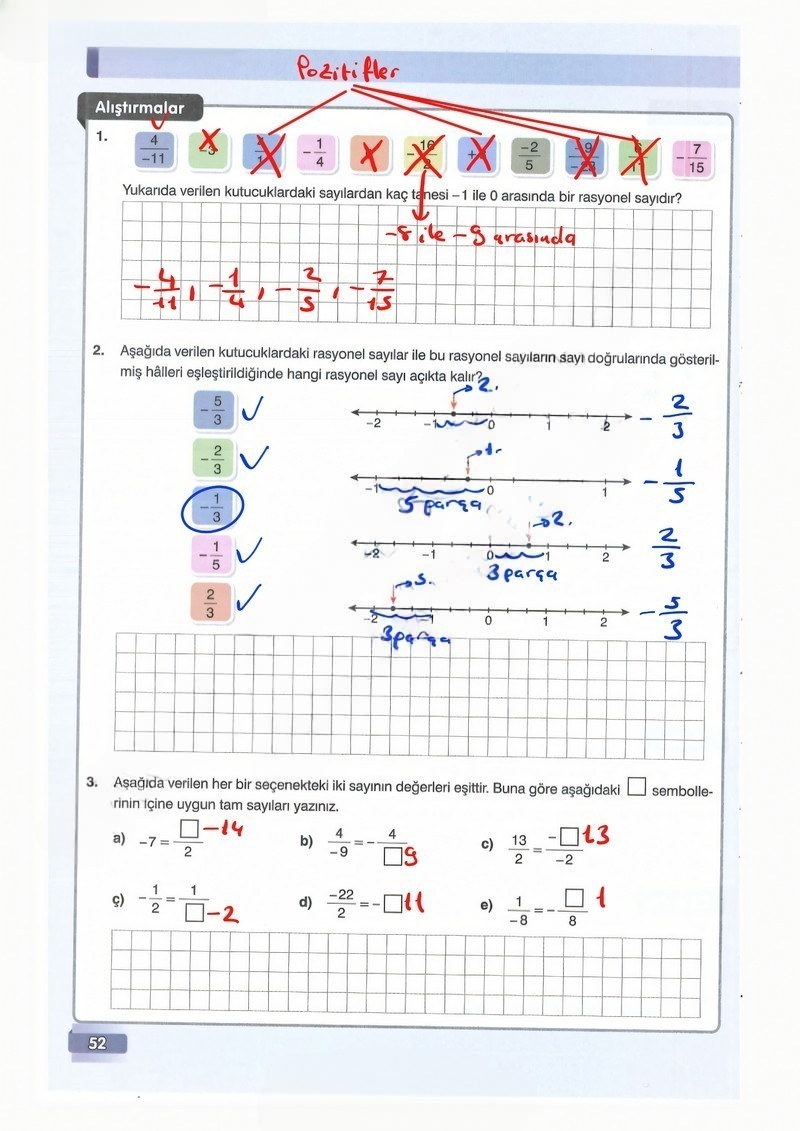 Pozitifler
Alıştırmalar
1. 4/-11 -3 -1/4 -16/2 -2/5 -9/-23 -7/15
Yukarıda verilen kutucuklardaki sayılardan kaç tanesi –1 ile 0 arasında bir rasyonel sayıdır?
-8 ile -9 arasında
-4/11, -1/4, -2/5, -7/15
2. Aşağıda verilen kutucuklardaki rasyonel sayılar ile bu rasyonel sayıların sayı doğrularında gösteril-
miş hâlleri eşleştirildiğinde hangi rasyonel sayı açıkta kalır?
2.
-5/3 -2 -1 0 1 2 -2/3
-2/3 1.
-1 0 1 -1/5
-1/3 5 parça
2.
-1/5 -2 -1 0 1 2 2/3
3 parça
5.
2/3 -2 -1 0 1 2 -5/3
3 parça
3. Aşağıda verilen her bir seçenekteki iki sayının değerleri eşittir. Buna göre aşağıdaki □ sembolle-
rinin içine uygun tam sayıları yazınız.
a) -7 = □/2 -14 b) 4/-9 = -4/□ 9 c) 13/2 = -□/-2 13
ç) -1/2 = 1/□ -2 d) -22/2 = -□ 11 e) 1/-8 = -□/8 1
52